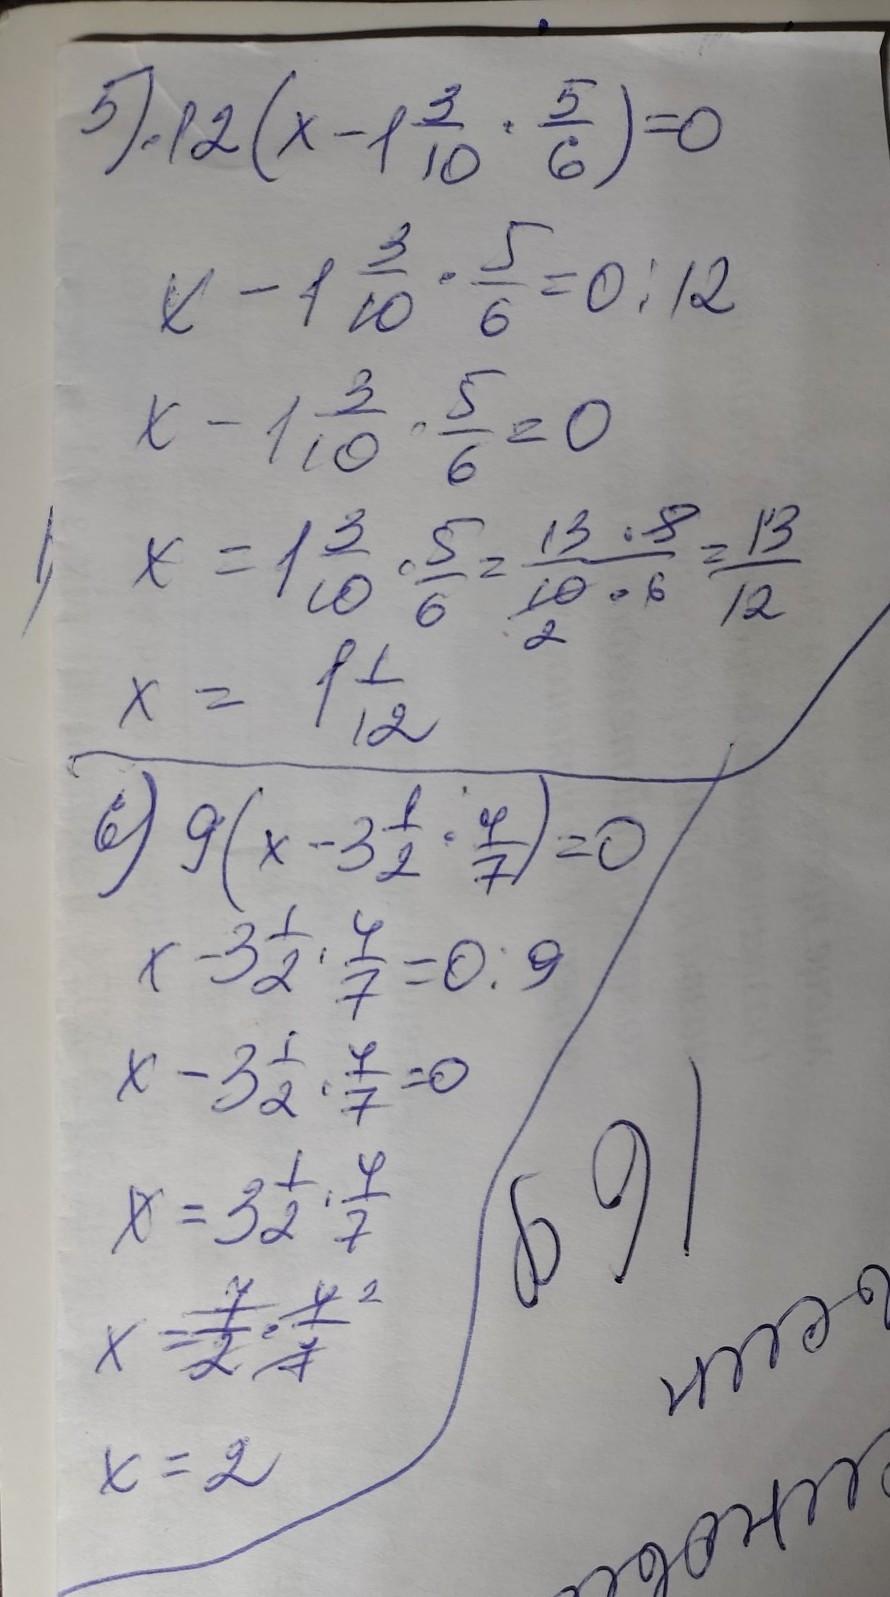 5) 12(x - 1 3/10 · 5/6) = 0
x - 1 3/10 · 5/6 = 0 : 12
x - 1 3/10 · 5/6 = 0
x = 1 3/10 · 5/6 = 13 · 5/10 · 6 = 13/12
2
x = 1 1/12
6) 9(x - 3 1/2 · 4/7) = 0
x - 3 1/2 · 4/7 = 0 : 9
x - 3 1/2 · 4/7 = 0
x = 3 1/2 · 4/7
x = 7/2 · 4/7 2
x = 2